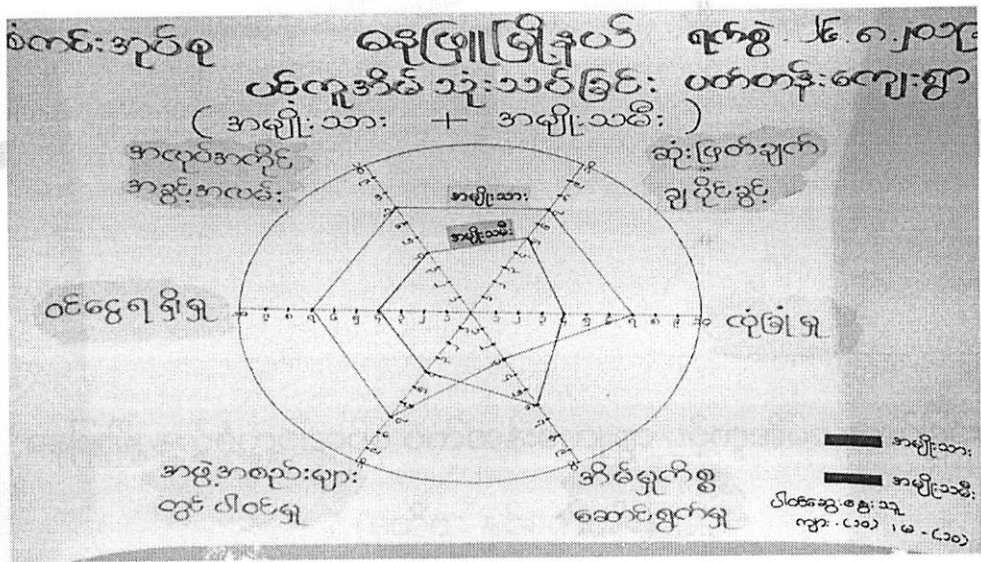 စံကင်းအုပ်စု ဓနုဖြူမြို့နယ် ရက်စွဲ ၂၆.၈.၂၀၁၉
ပင့်ကူအိမ် သုံးသပ်ခြင်း ပတ်တန်းကျေးရွာ
( အမျိုးသား + အမျိုးသမီး )
အလုပ်အကိုင်
အခွင့်အလမ်း
ဆုံးဖြတ်ချက်
ချပိုင်ခွင့်
အမျိုးသား
အမျိုးသမီး
ဝင်ငွေရရှိမှု
လုံခြုံမှု
အဖွဲ့အစည်းများ
တွင် ပါဝင်မှု
အိမ်မှုကိစ္စ
ဆောင်ရွက်မှု
အမျိုးသား
အမျိုးသမီး
ပါဝင်ဆွေးနွေးသူ
ကျား - (၁၀) ၊ မ - (၁၀)